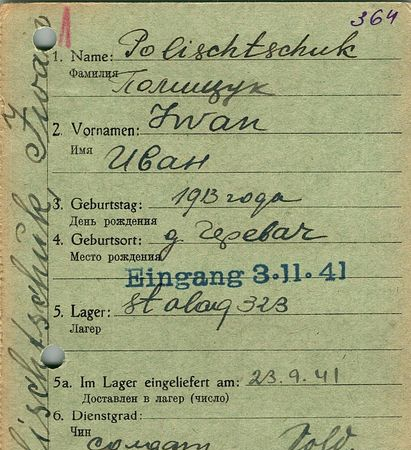 364
1. Name: Polischtschuk
Фамилия
Полищук
2. Vornamen: Iwan
Имя
Иван
3. Geburtstag: 1913 года
День рождения
4. Geburtsort: д Черевач
Место рождения
Eingang 3.11.41
5. Lager: Stalag 323
Лагер
5a. Im Lager eingeliefert am: 23.9.41
Доставлен в лагер (число)
6. Dienstgrad:
Чин
солдат Sold.
Polischtschuk, Iwan